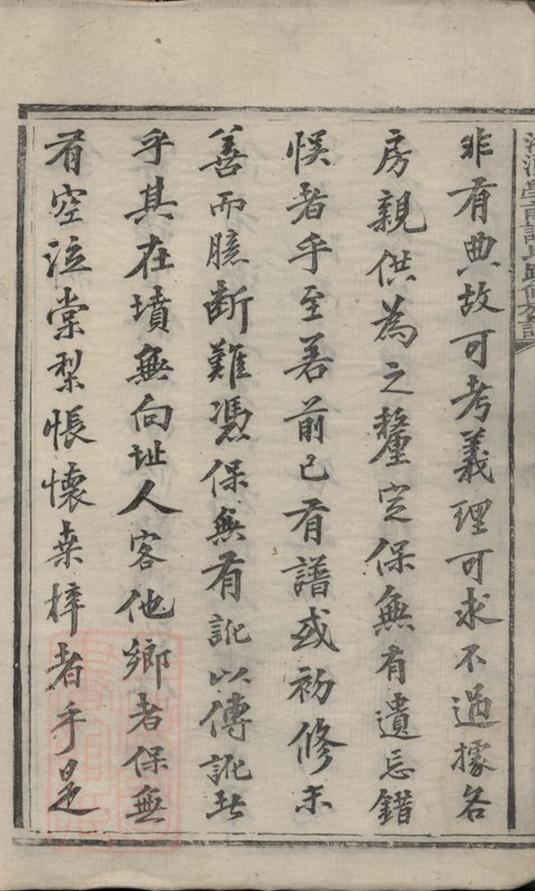 非有典故可考義理可求不過據各
房親供為之釐定保無有遺忘錯
悮者乎至若前已有譜或初修未
善而臆斷難憑保無有訛以傳訛者
乎其在墳無向址人客他鄉者保無
有空泣棠梨悵懷桑梓者乎是